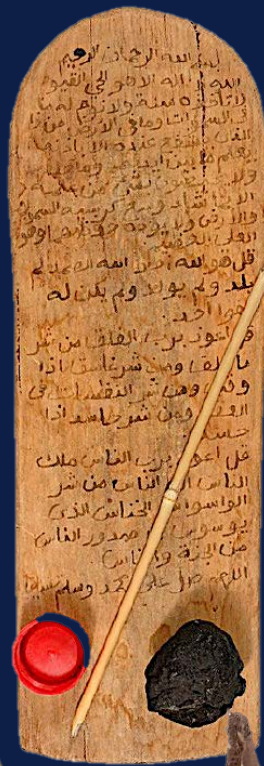 بسم الله الرحمان الرحيم
الله لا اله الا هو الحي القيوم
لا تاخذه سنة ولا نوم له ما
في السموات وما في الارض من ذا
الذي يشفع عنده الا باذنه
يعلم ما بين ايديهم وما
ولا يحيطون بشيء من علمه
الا بما شاء وسع كرسيه السموات
والارض ولا يوده حفظهما وهو
العلي العظيم
قل هو الله احد الله الصمد لم
يلد ولم يولد ولم يكن له
كفوا احد
قل اعوذ برب الفلق من شر
ما خلق ومن شر غاسق اذا
وقب ومن شر النفثات في
العقد ومن شر حاسد اذا
حسد
قل اعوذ برب الناس ملك
الناس اله الناس من شر
الواسواس الخناس الذي
يوسوس في صدور الناس
من الجنة والناس
اللهم صل على محمد وسلم